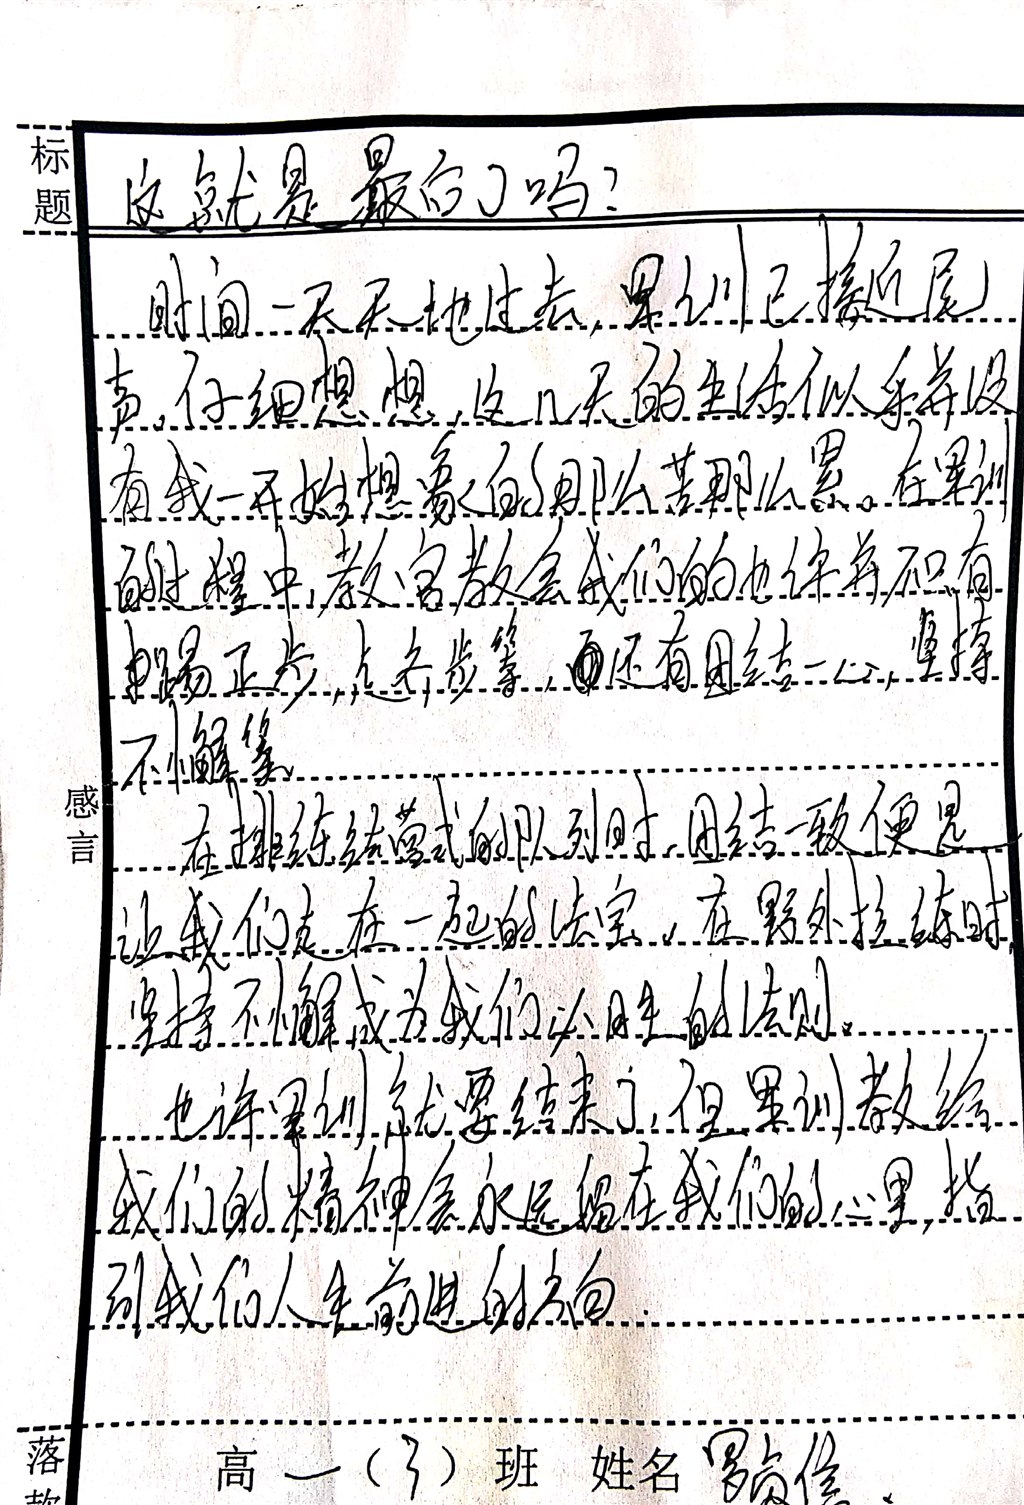 标题 这就是最后了吗?
时间一天天地过去,军训已接近尾
声,仔细想想,这几天的生活似乎并没
有我一开始想象的那么苦那么累。在军训
的过程中,教官教会我们的也许并不只有
踢正步,齐步等,还有团结一心,坚持
不懈等。
感言
在排练结营式的队列时,团结一致便是
让我们走在一起的法宝。在野外拉练时,
坚持不懈成为我们必胜的法则。
也许军训就要结束了,但军训教给
我们的精神会永远留在我们的心里,指
引我们人生前进的方向.
落款 高一(3)班 姓名 罗